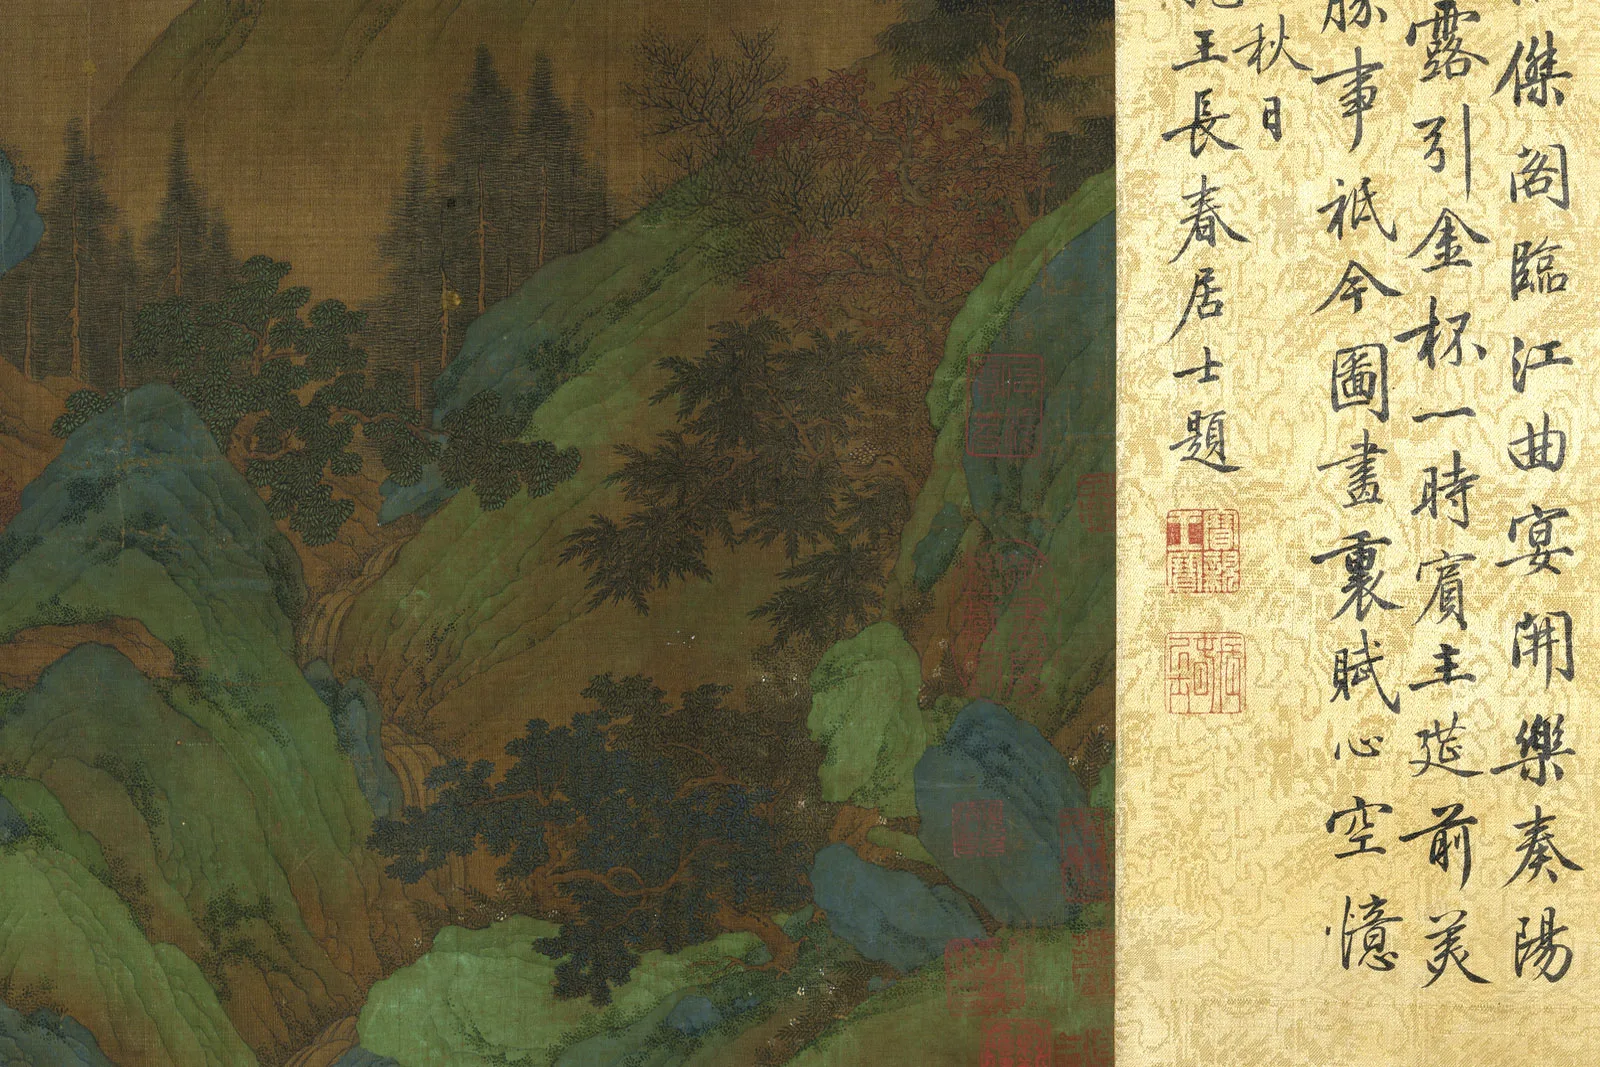 傑閣臨江曲宴開樂奏陽
露引金杯一時賓主筵前美
勝事祇今圖畫裏賦心空憶
秋日
王長春居士題